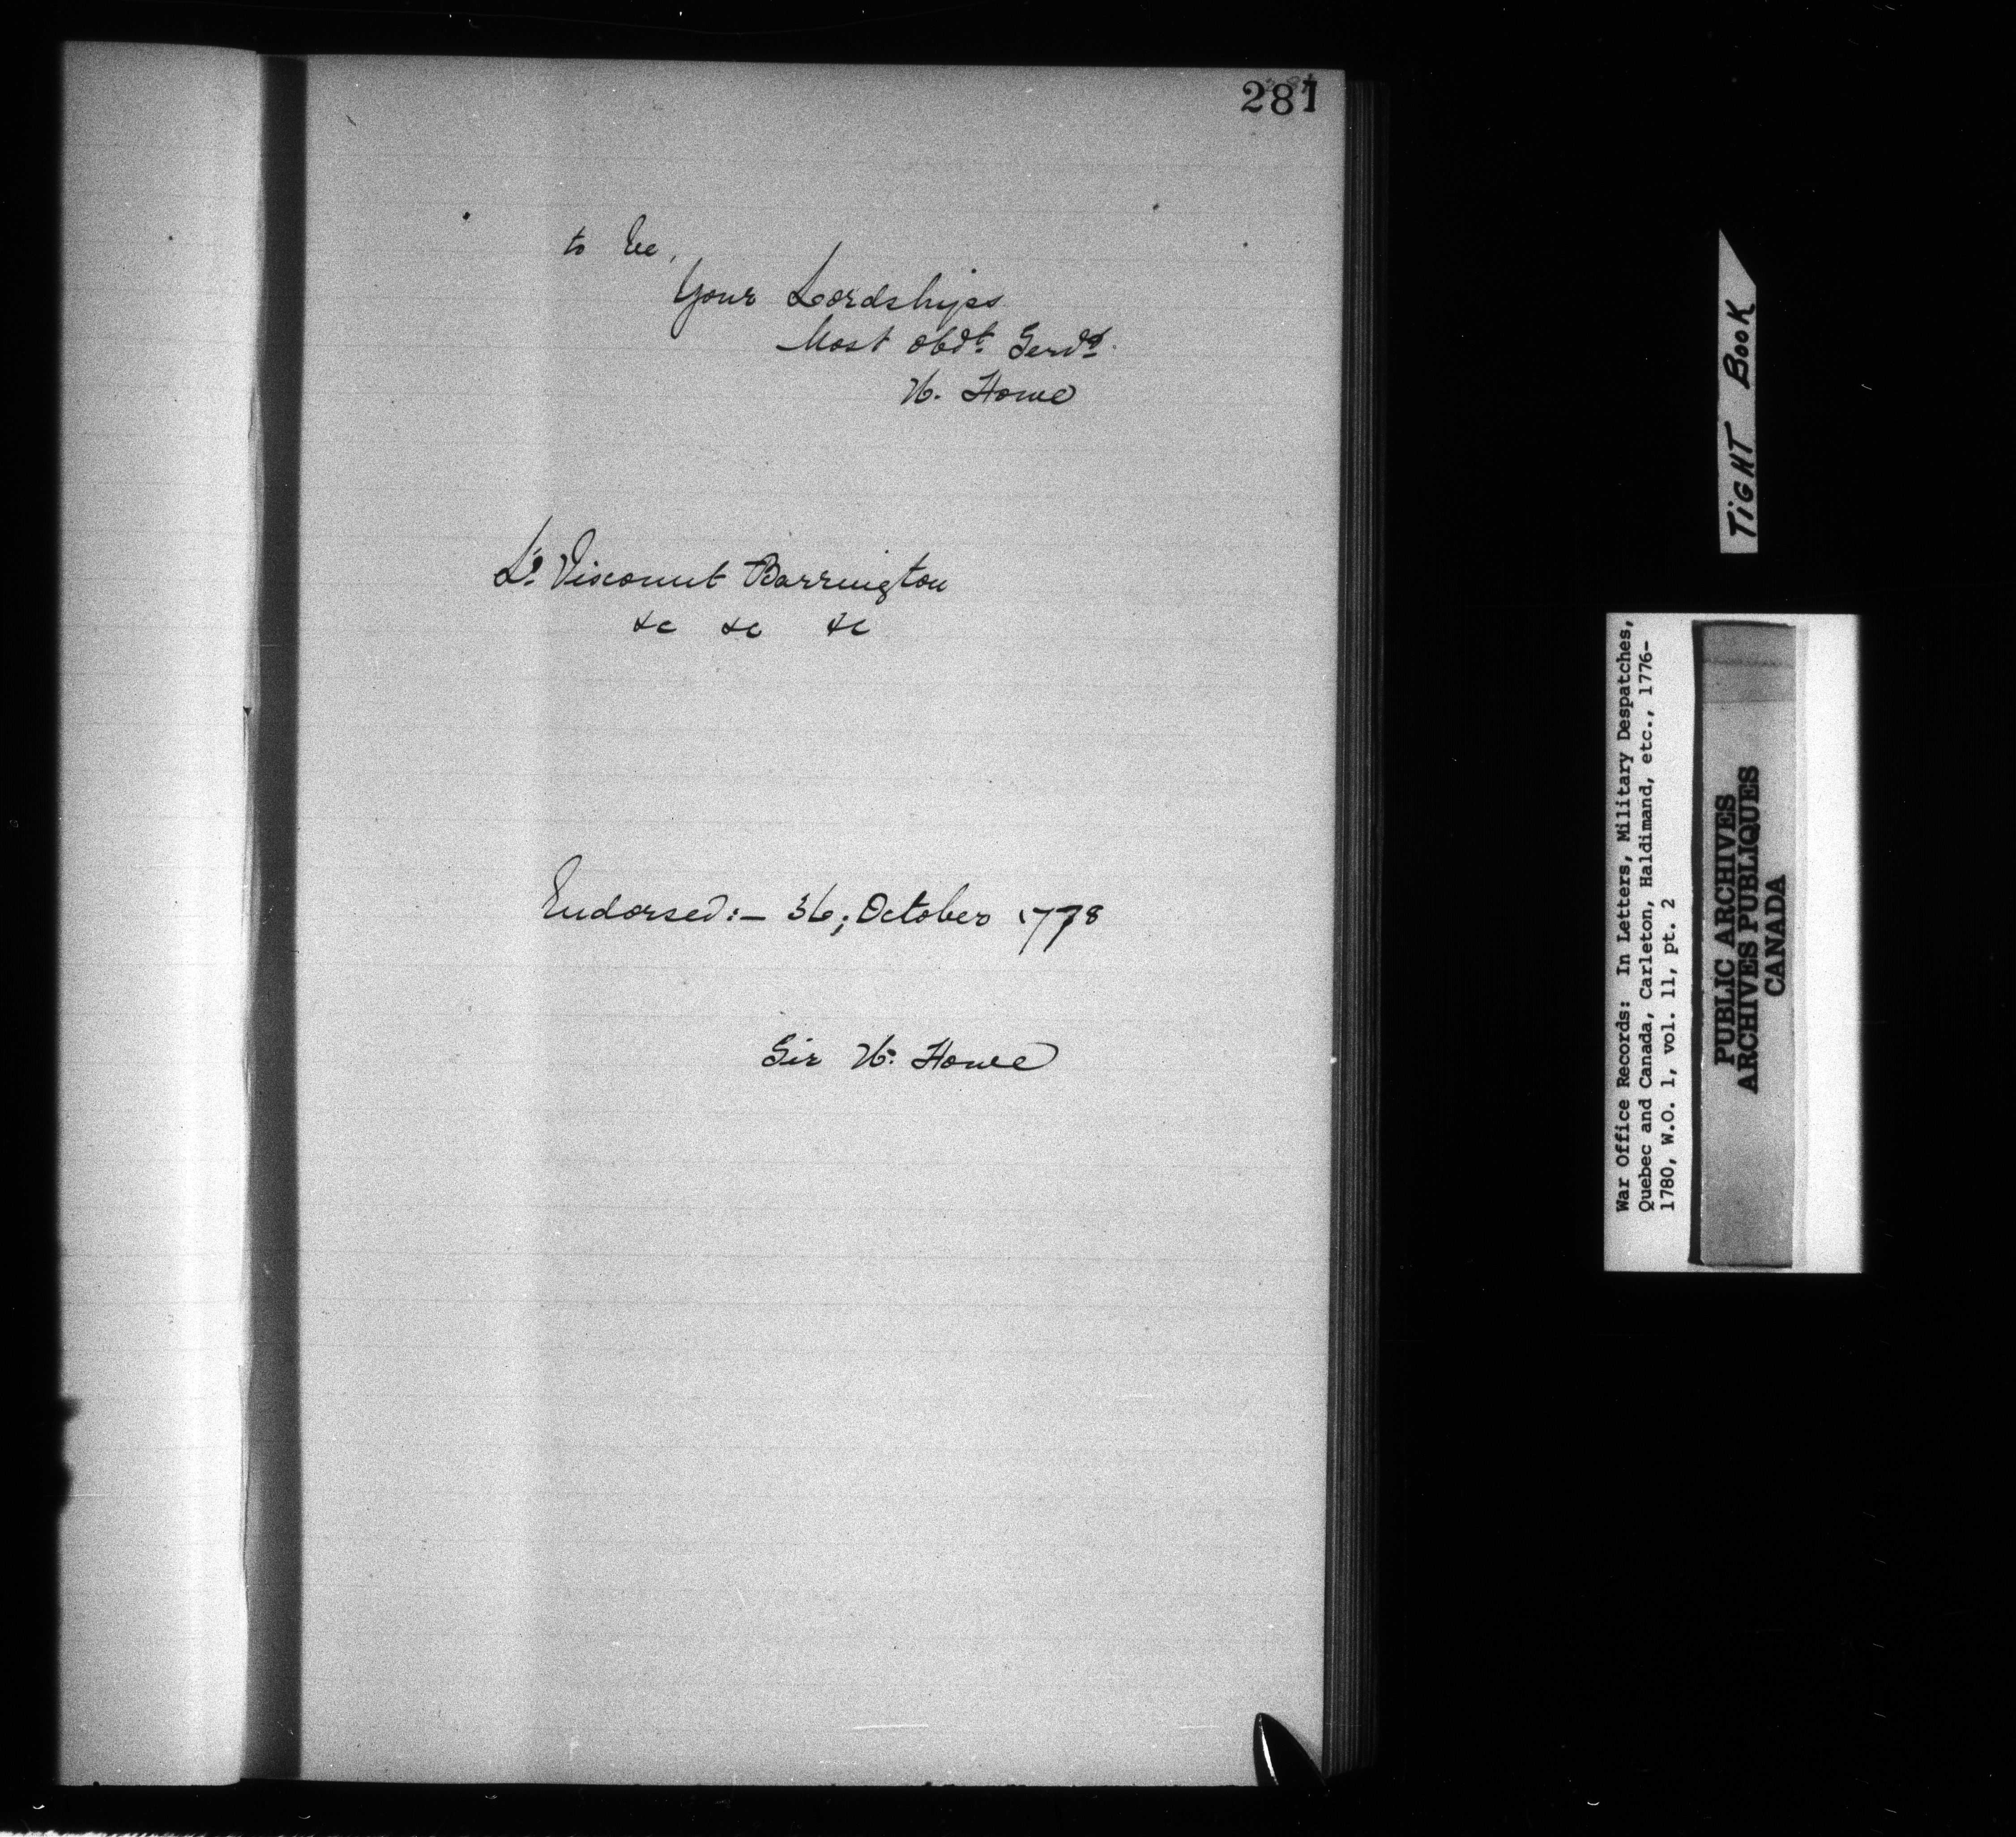 281
to be,
Your Lordships
Most obdt. Servt.
W. Howe
Ld. Viscount Barrington
&c &c &c
Endorsed:– 36; October 1778
Sir W. Howe
TiGHT BooK
War Office Records: In Letters, Military Despatches,
Quebec and Canada, Carleton, Haldimand, etc., 1776-
1780, W.O. 1, vol. 11, pt. 2
PUBLIC ARCHIVES
ARCHIVES PUBLIQUES
CANADA